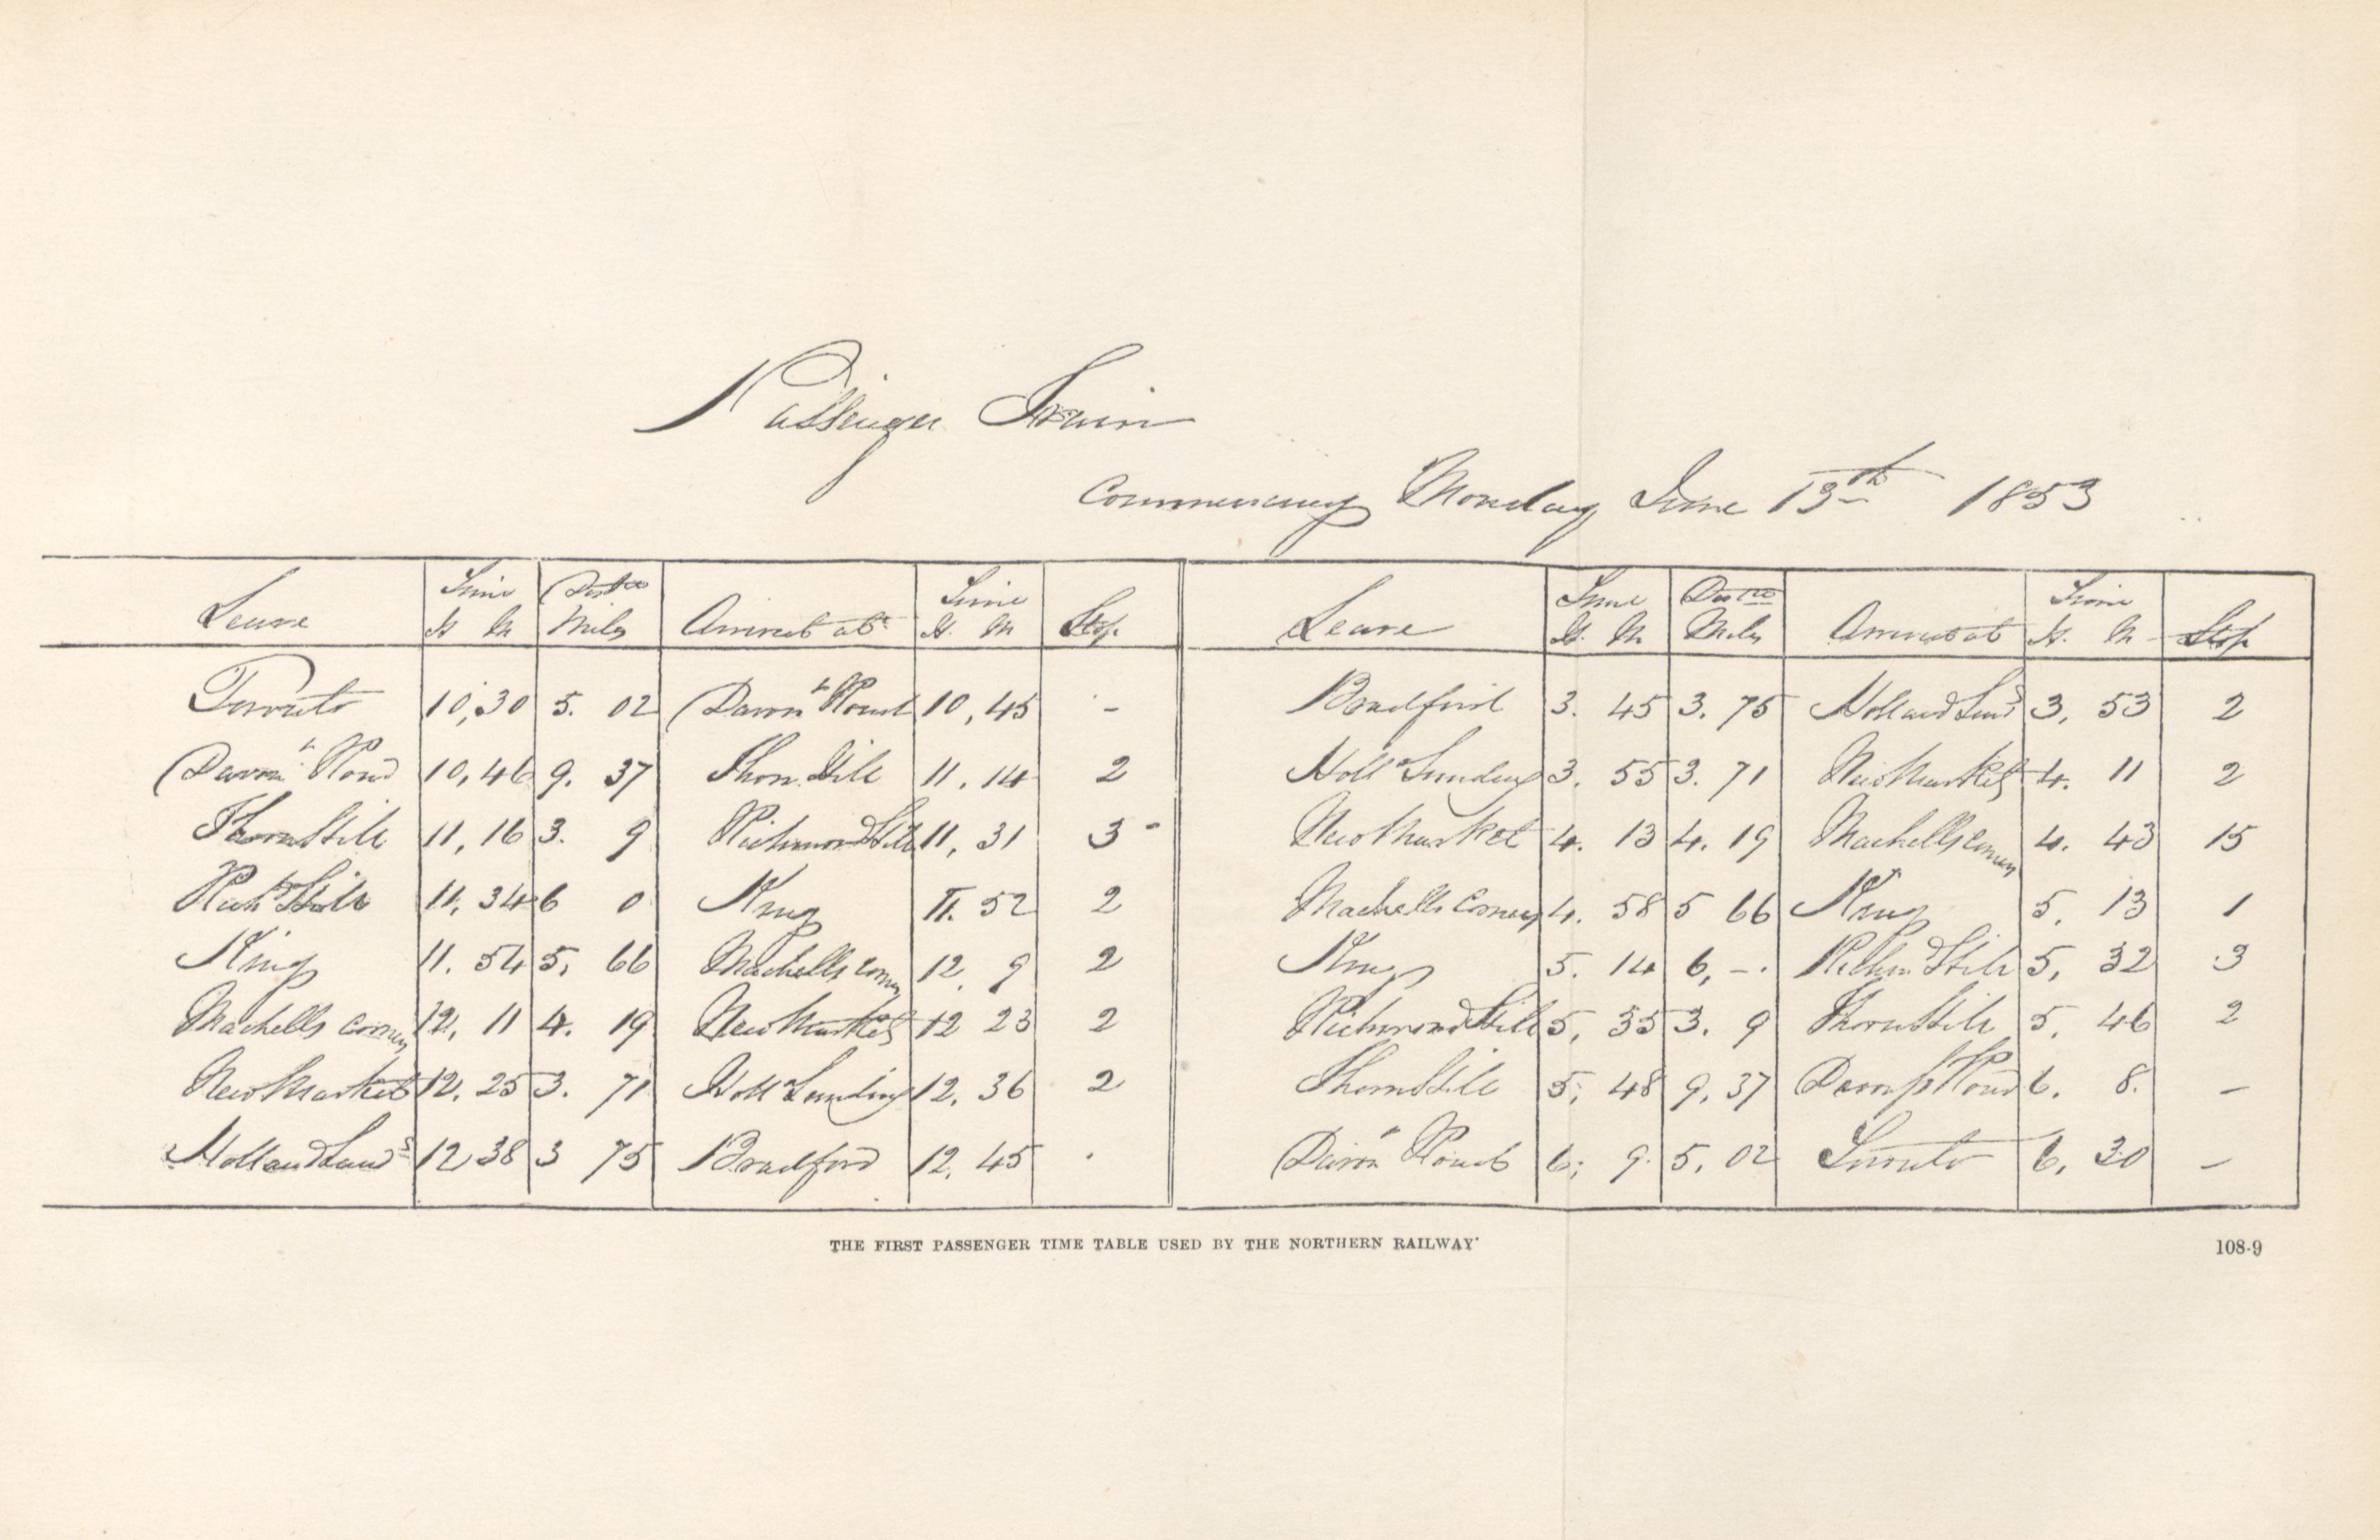 Passenger Train
Commencing Monday June 13th 1853
Leave Time Distce Arrives at Time Stop Leave Time Distce Arrives at Time Stop
H M Miles H. M H. M Miles H. M
Toronto 10,30 5. 02 Davn. Road 10,45 - Bradford 3. 45 3. 75 Holland Land 3, 53 2
Davn. Road 10,46 9. 37 Thorn.Hill 11,14 2 Holl Landing 3. 55 3. 71 NewMarket 4. 11 2
ThornHill 11,16 3. 9 RichmondHill 11,31 3 - NewMarket 4. 13 4. 19 Machells Corners 4. 43 15
Richd Hill 11,34 6 0 King 11. 52 2 Machells Corners 4. 58 5 66 King 5. 13 1
King 11. 54 5, 66 Machells Corners 12. 9 2 King 5. 14 6, -. Richmd Hill 5, 32 3
Machells Corners 12, 11 4. 19 NewMarket 12 23 2 Richmond Hill 5, 35 3. 9 ThornHill 5, 46 2
NewMarket 12, 25 3. 71 Holl Landing 12, 36 2 ThornHill 5, 48 9, 37 Road 6. 8. -
Holland Landg 12 38 3 75 Bradford 12, 45 . Davn. Road 6, 9. 5, 02 Toronto 6, 30 -
THE FIRST PASSENGER TIME TABLE USED BY THE NORTHERN RAILWAY. 108-9